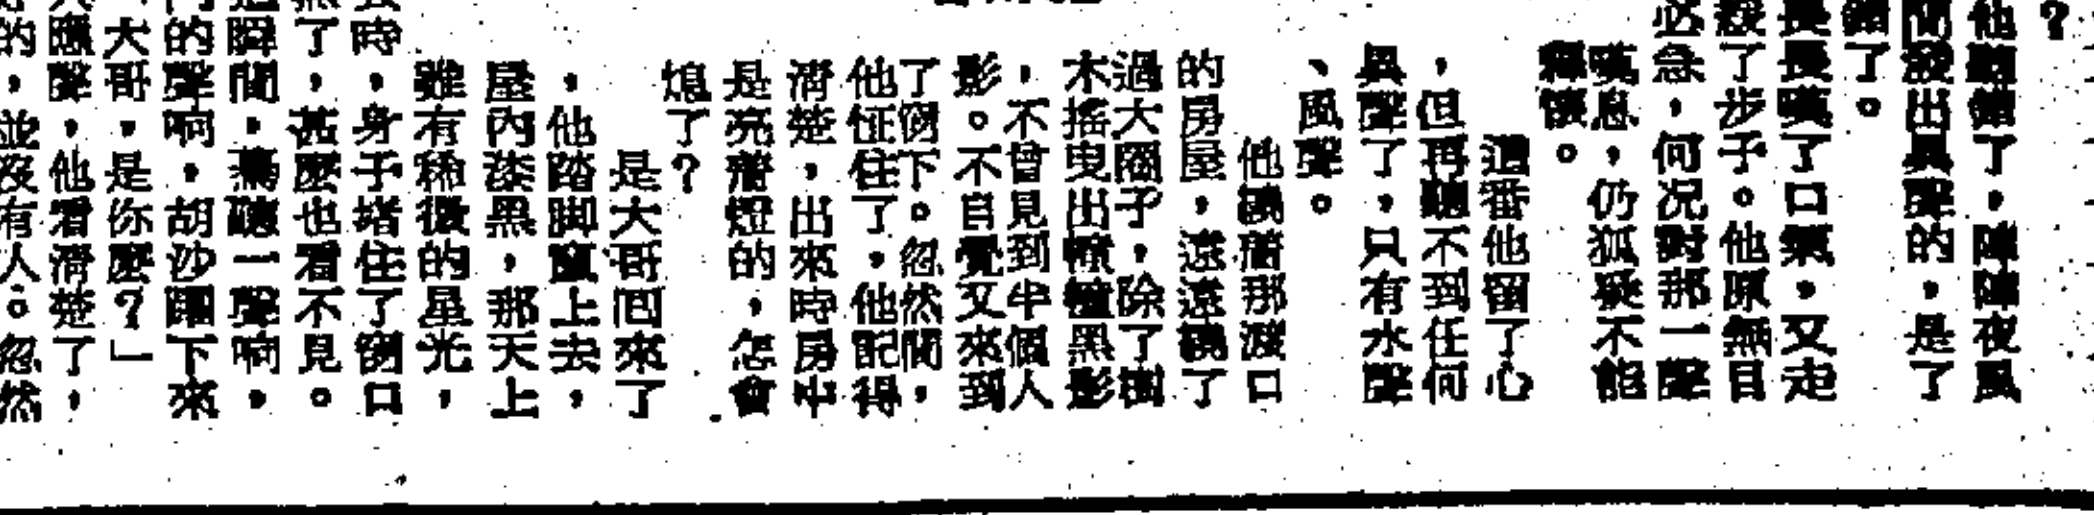 ？
他聽錯了，陣陣夜風
間發出異聲的，是了
錯了。
長長嘆了口氣，又走
緩了步子。他原無目
必急，何況對那一聲
嘆息，仍狐疑不能
釋懷。
這番他留了心
，但再聽不到任何
異聲了，只有水聲
、風聲。
他繞着那渡口
的房屋，遠遠繞了
過大圈子，除了樹
木搖曳出幢幢黑影
，不曾見到半個人
影。不自覺又來到
了窗下。忽然間，
他怔住了，他記得
清楚，出來時房中
是亮着燈的，怎會
熄了？
是大哥回來了
，他踏脚窗上去，
屋內漆黑，那天上
雖有稀微的星光，
時，身子堵住了窗口
了，甚麼也看不見。
瞬間，驀聽一聲响，
的聲响，胡沙躍下來
大哥，是你麼？」
應聲，他看清楚了，
的，並沒有人。忽然